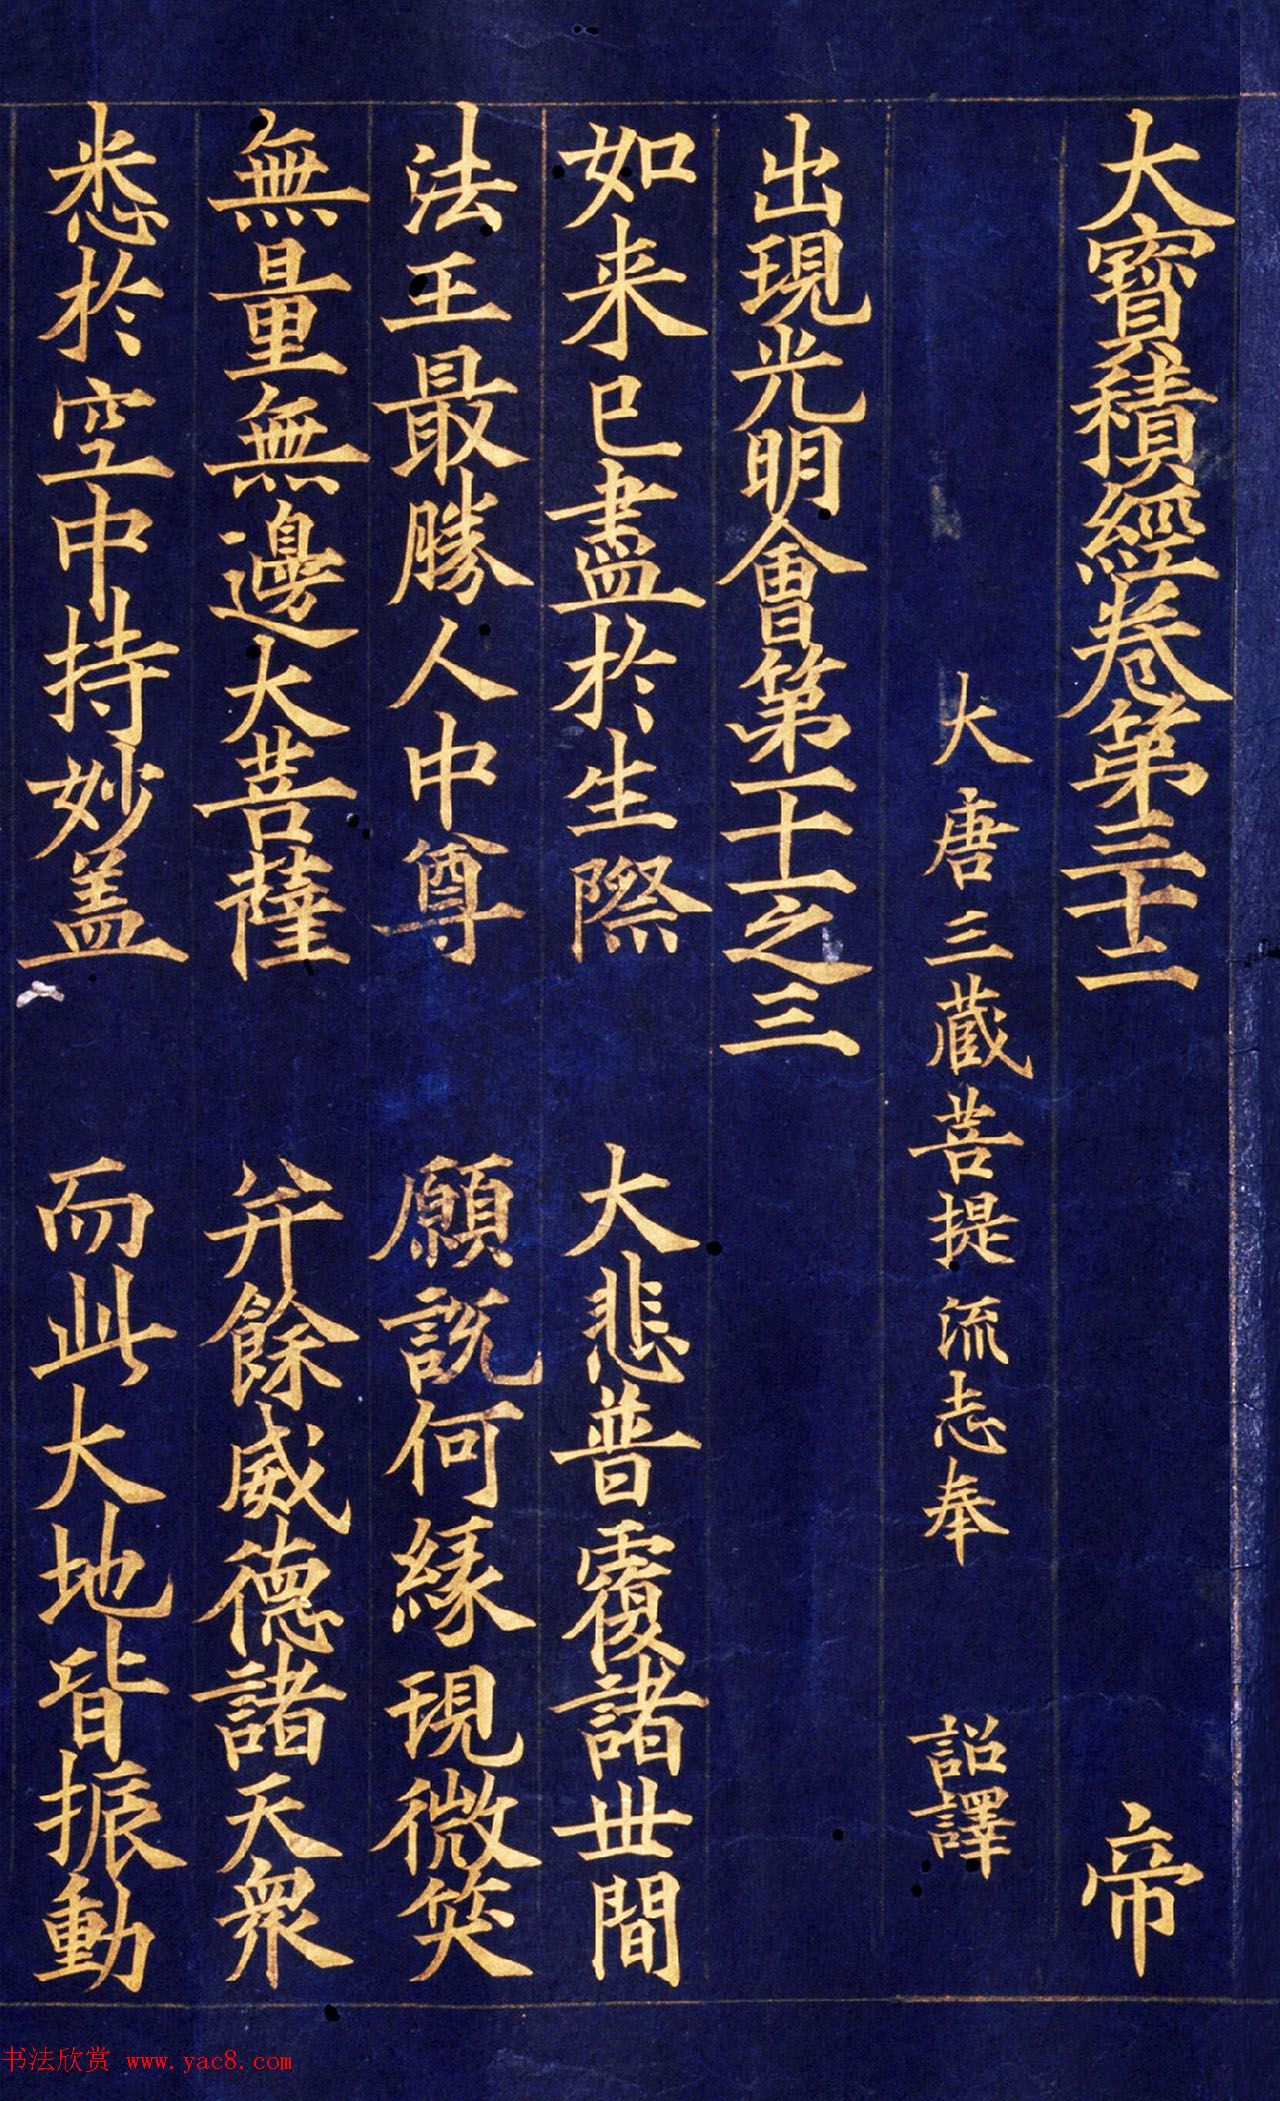 大寶積經卷第三十二　帝
大唐三藏菩提流志奉　詔譯
出現光明會第十一之三
如来已盡於生際　大悲普覆諸世間
法王最勝人中尊　願説何緣現微笑
無量無邊大菩薩　并餘威德諸天衆
悉於空中持妙盖　而此大地皆振動
书法欣赏 www.yac8.com